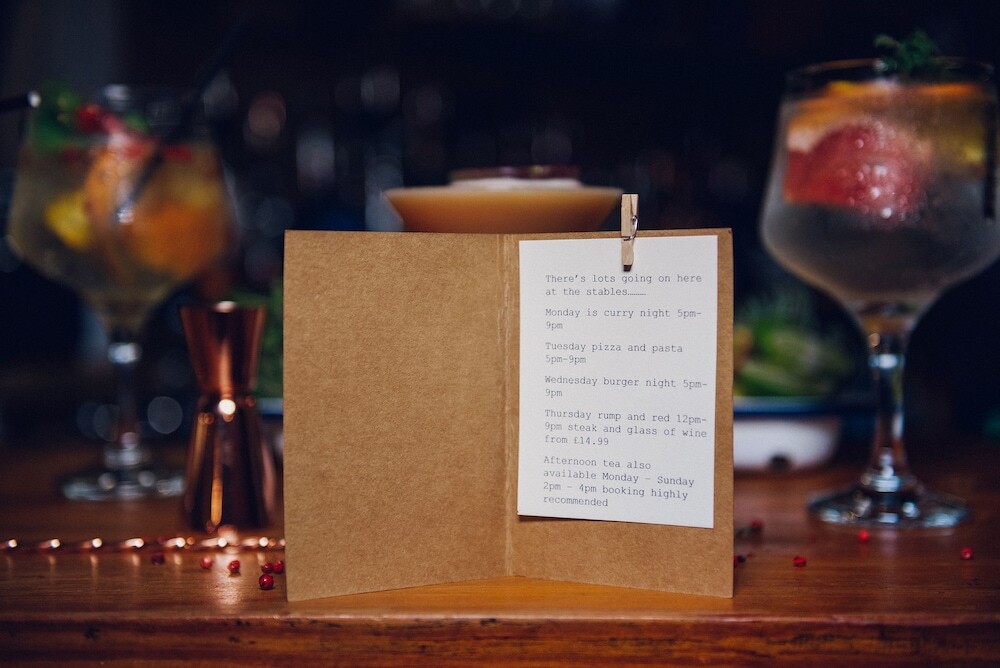 There's lots going on here
at the stables………
Monday is curry night 5pm-
9pm
Tuesday pizza and pasta
5pm-9pm
Wednesday burger night 5pm-
9pm
Thursday rump and red 12pm-
9pm steak and glass of wine
from £14.99
Afternoon tea also
available Monday – Sunday
2pm – 4pm booking highly
recommended